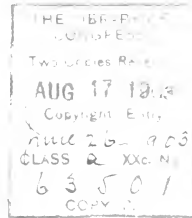 THE LIBRARY OF
CONGRESS
Two Copies Rec
AUG 17 1903
Copyright Entry
June 26 1903
CLASS a XXc. No
6 3 5 0 1
COPY